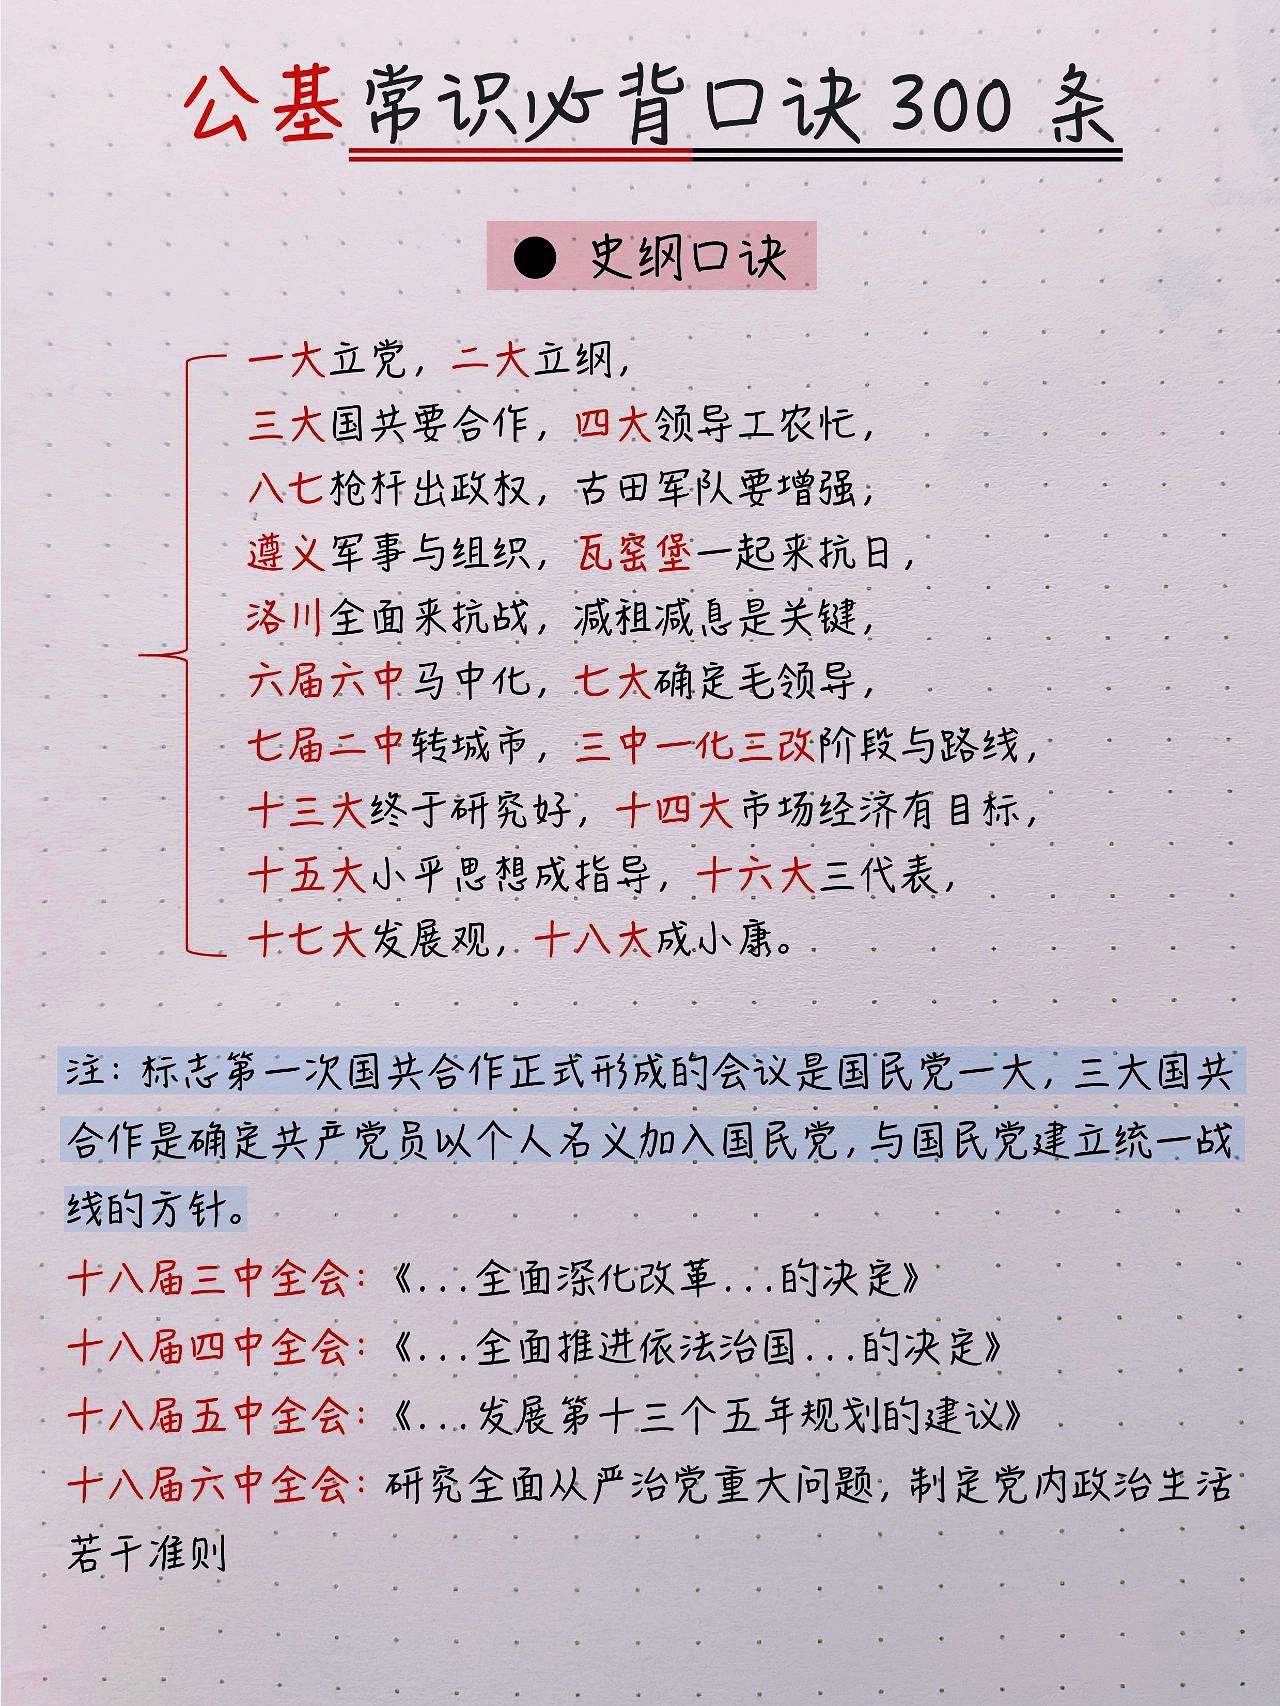 公基常识必背口诀300条
● 史纲口诀
一大立党，二大立纲，
三大国共要合作，四大领导工农忙，
八七枪杆出政权，古田军队要增强，
遵义军事与组织，瓦窑堡一起来抗日，
洛川全面来抗战，减租减息是关键，
六届六中马中化，七大确定毛领导，
七届二中转城市，三中一化三改阶段与路线，
十三大终于研究好，十四大市场经济有目标，
十五大小平思想成指导，十六大三代表，
十七大发展观，十八大成小康。
注：标志第一次国共合作正式形成的会议是国民党一大，三大国共
合作是确定共产党员以个人名义加入国民党，与国民党建立统一战
线的方针。
十八届三中全会：《...全面深化改革...的决定》
十八届四中全会：《...全面推进依法治国...的决定》
十八届五中全会：《...发展第十三个五年规划的建议》
十八届六中全会：研究全面从严治党重大问题，制定党内政治生活
若干准则